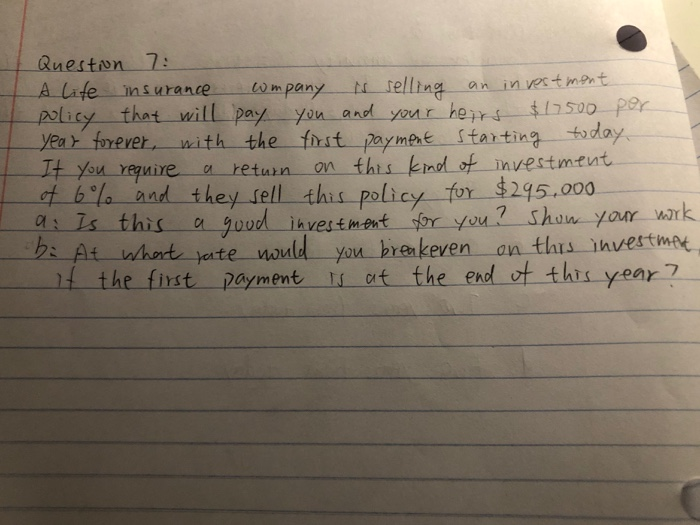 Question 7:
A Life insurance company is selling an investment
policy that will pay you and your heirs $17500 per
year forever, with the first payment starting today.
If you require a return on this kind of investment
of 6% and they sell this policy for $295.000
a: Is this a good investment for you? Show your work
b: At what rate would you breakeven on this investmet
if the first payment is at the end of this year?